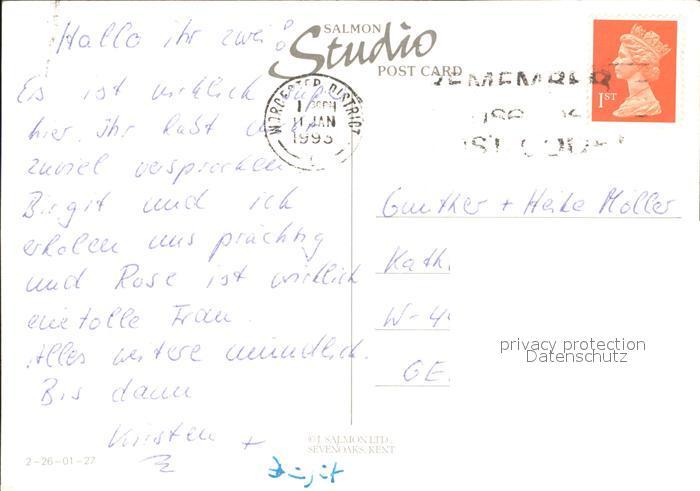 SALMON
Studio
POST CARD
1ST
WORCESTER DISTRICT
11 JAN
1993
REMEMBER
USE
POSTCODE
Hallo ihr zwei
Es ist wirklich super
hier. Ihr habt nicht
zuviel versprochen
Birgit und ich
erholen uns prächtig
und Rose ist wirklich
eine tolle Frau.
Alles weitere mündlich.
Bis dann
Kirsten +
Birgit
Gunther + Heike Möller
Kath
W-4
GE
privacy protection
Datenschutz
© J. SALMON LTD.,
SEVENOAKS, KENT
2-26-01-27